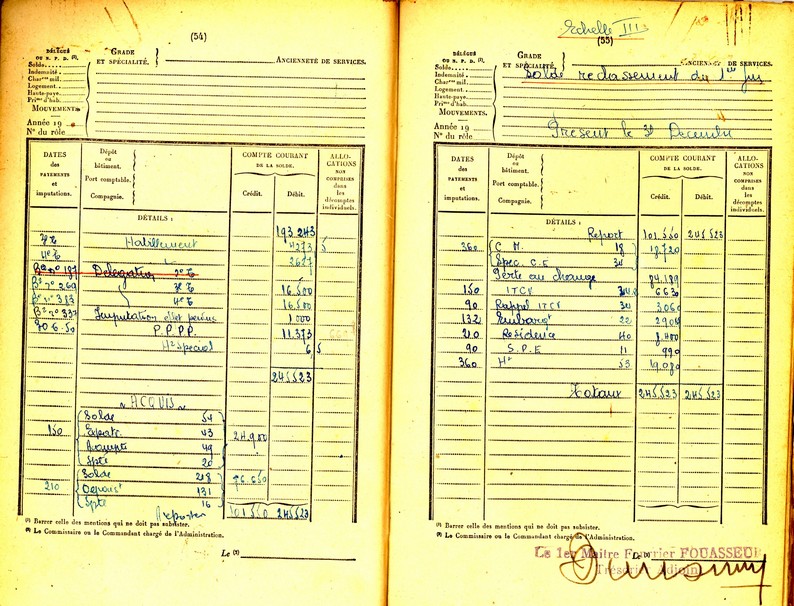 (54)
DÉLÉGUÉ
OU N. P. D. (¹).
Solde
Indemnité
Char^ses mil.
Logement
Haute-paye
Pri^mes d'hab.
MOUVEMENTS.
Année 19
N° du rôle
GRADE
ET SPÉCIALITÉ.
ANCIENNETÉ DE SERVICES.
DATES
des
PAYEMENTS
et
imputations.
Dépôt
ou
bâtiment.
Port comptable.
Compagnie.
COMPTE COURANT
DE LA SOLDE.
Crédit.
Débit.
ALLO-
CATIONS
NON
COMPRISES
dans
les
décomptes
individuels.
DÉTAILS :
193 243
3e T Habillement 4273 5
4e T 2627
Délégation 2e T
3e T 16.500
4e T 16.500
1000
P.P.P.P. 11.373
H^t Spécial 6,5
245523
ACQUIS
Solde 54
150 43 24.900
49
Spte 20
Solde 218 76.650
210 131
Spte 16
A reporter 101.550 245523
(¹) Barrer celle des mentions qui ne doit pas subsister.
(²) Le Commissaire ou le Commandant chargé de l'Administration.
Le (²)
Echelle III
(55)
DÉLÉGUÉ
OU N. P. D. (¹).
Solde
Indemnité
Char^ses mil.
Logement
Haute-paye
Pri^mes d'hab.
MOUVEMENTS.
Année 19
N° du rôle
GRADE
ET SPÉCIALITÉ.
ANCIENNETÉ DE SERVICES.
Solde reclassement du 1er
Présent le 31 Décembre
DATES
des
PAYEMENTS
et
imputations.
Dépôt
ou
bâtiment.
Port comptable.
Compagnie.
COMPTE COURANT
DE LA SOLDE.
Crédit.
Débit.
ALLO-
CATIONS
NON
COMPRISES
dans
les
décomptes
individuels.
DÉTAILS :
Report 101.550 245523
360 C. M. 18 18.720
Spec. C.E 34
Perte au change 84.189
150 ITCF 6630
90 Rappel ITCF 34 3060
132 Embarqt 22 2904
210 Résidence 40 8.400
90 S.P.E 11 990
360 H^t 53 19.080
Totaux 245.523 245523
(¹) Barrer celle des mentions qui ne doit pas subsister.
(²) Le Commissaire ou le Commandant chargé de l'Administration.
Le (²)
Le 1er Maître Fourrier FOUASSEUR
Trésorier Adjoint